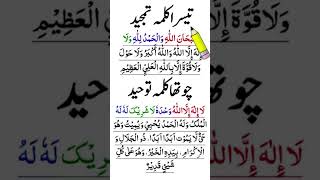 تیسرا کلمہ تمجید
سُبْحَانَ اللّٰهِ وَالْحَمْدُ لِلّٰهِ وَلَا
اِلٰهَ اِلَّا اللّٰهُ وَاللّٰهُ اَكْبَرُ وَلَا حَوْلَ
وَلَا قُوَّةَ اِلَّا بِاللّٰهِ الْعَلِيِّ الْعَظِيْمِ
چوتھا کلمہ توحید
لَا اِلٰهَ اِلَّا اللّٰهُ وَحْدَهٗ لَا شَرِيْكَ لَهٗ لَهُ
الْمُلْكُ وَ لَهُ الْحَمْدُ يُحْيٖ وَ يُمِيْتُ وَ هُوَ
حَيٌّ لَّا يَمُوْتُ اَبَدًا اَبَدًا ؕ ذُو الْجَلَالِ وَ
الْاِكْرَامِ ؕ بِيَدِهِ الْخَيْرُ ؕ وَهُوَ عَلٰى كُلِّ
شَيْئٍ قَدِيْرٌ